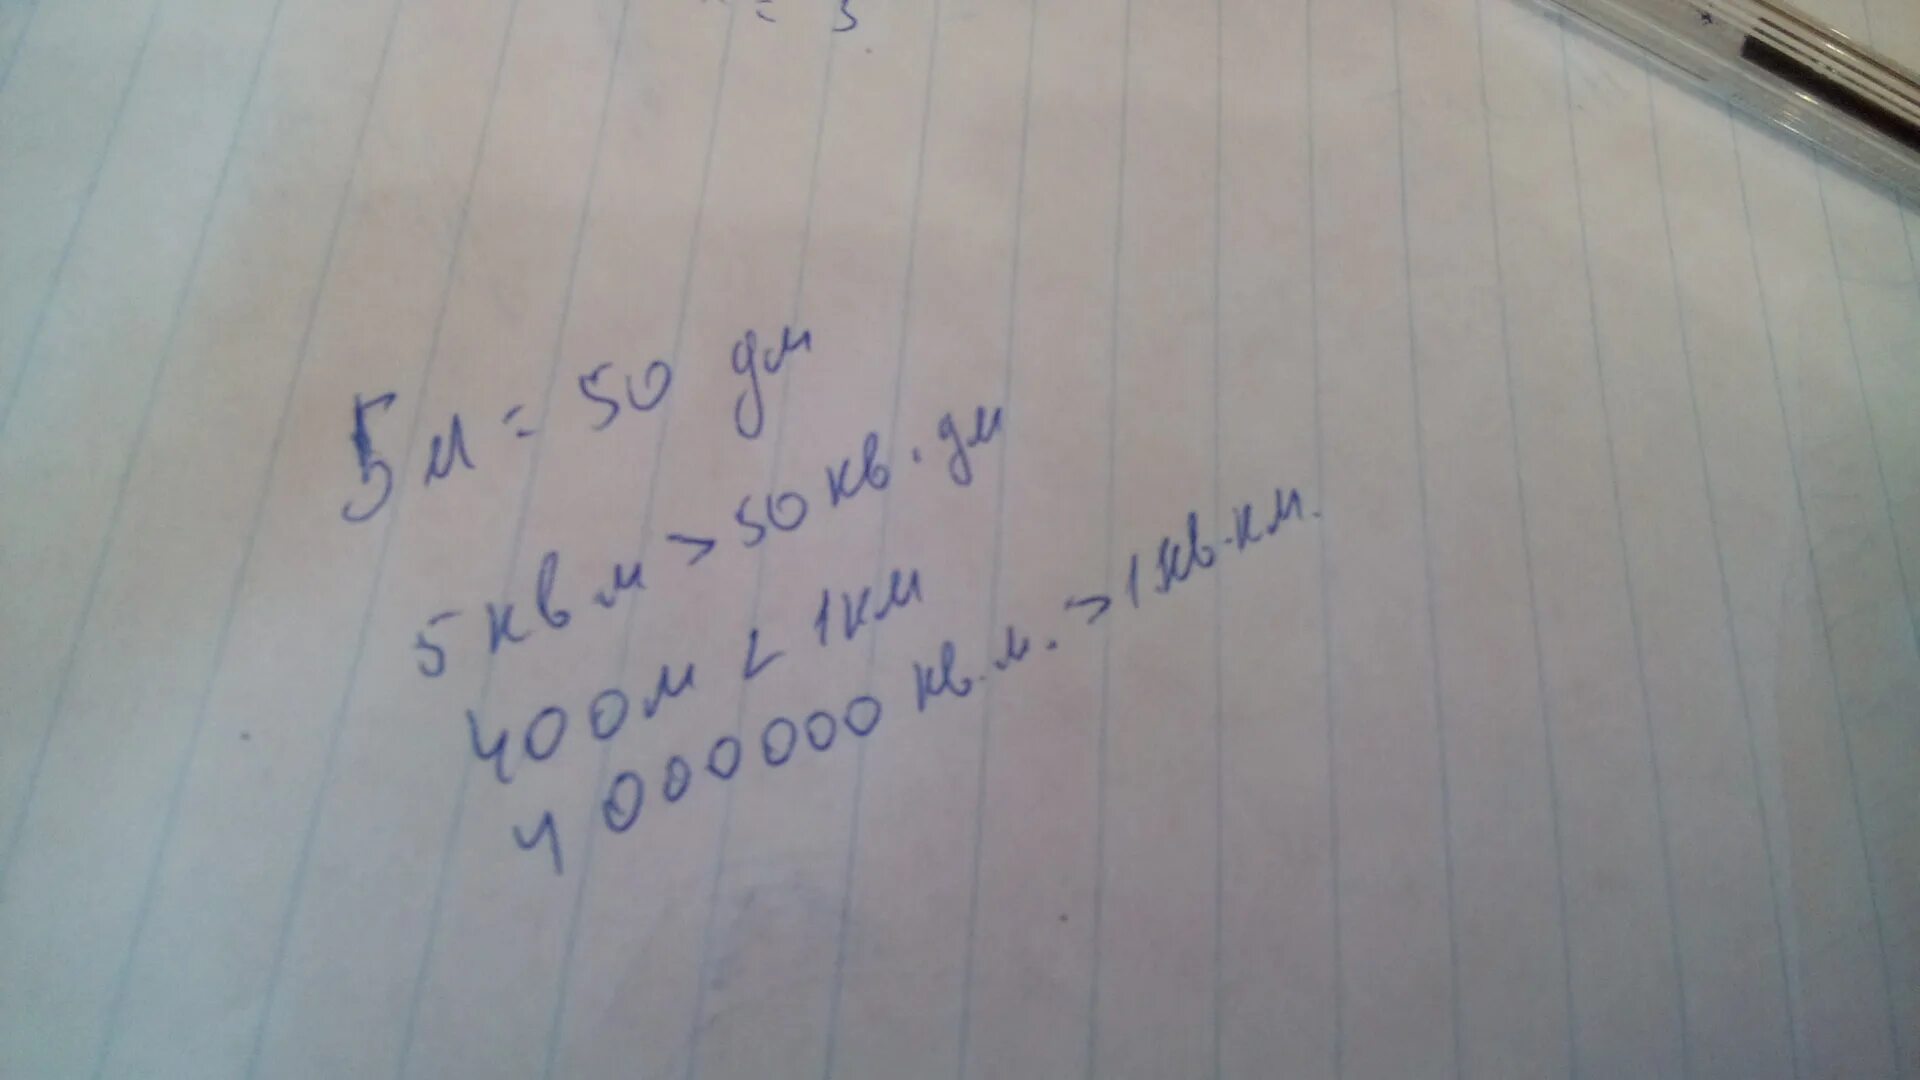 5м = 50 дм
5 кв м > 50 кв. дм
400м < 1км
4 000000 кв. м. > 1 кв. км.